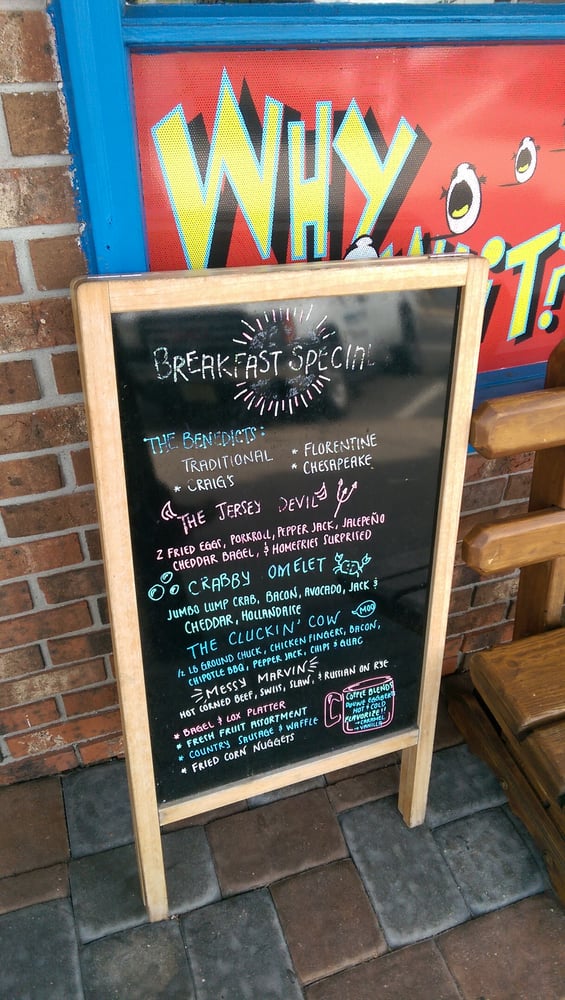 WHY
BREAKFAST SPECIAL
THE BENEDICTS:
TRADITIONAL
* FLORENTINE
* CRAIG'S
* CHESAPEAKE
THE JERSEY DEVIL
2 FRIED EGGS, PORKROLL, PEPPER JACK, JALEPEÑO
CHEDDAR BAGEL, & HOMEFRIES SURPRISED
CRABBY OMELET
JUMBO LUMP CRAB, BACON, AVOCADO, JACK &
CHEDDAR, HOLLANDAICE
THE CLUCKIN' COW
MOO
1/2 LB GROUND CHUCK, CHICKEN FINGERS, BACON,
CHIPOTLE BBQ, PEPPER JACK, CHIPS & GUAC
MESSY MARVIN
HOT CORNED BEEF, SWIIS, SLAW, & RUSSIAN ON RYE
* BAGEL & LOX PLATTER
* FRESH FRUIT ASSORTMENT
* COUNTRY SAUSAGE & WAFFLE
* FRIED CORN NUGGETS
COFFEE BLENDS
HOT & COLD
FLAVORIZE!!
→ CARAMEL
→ VANILLA